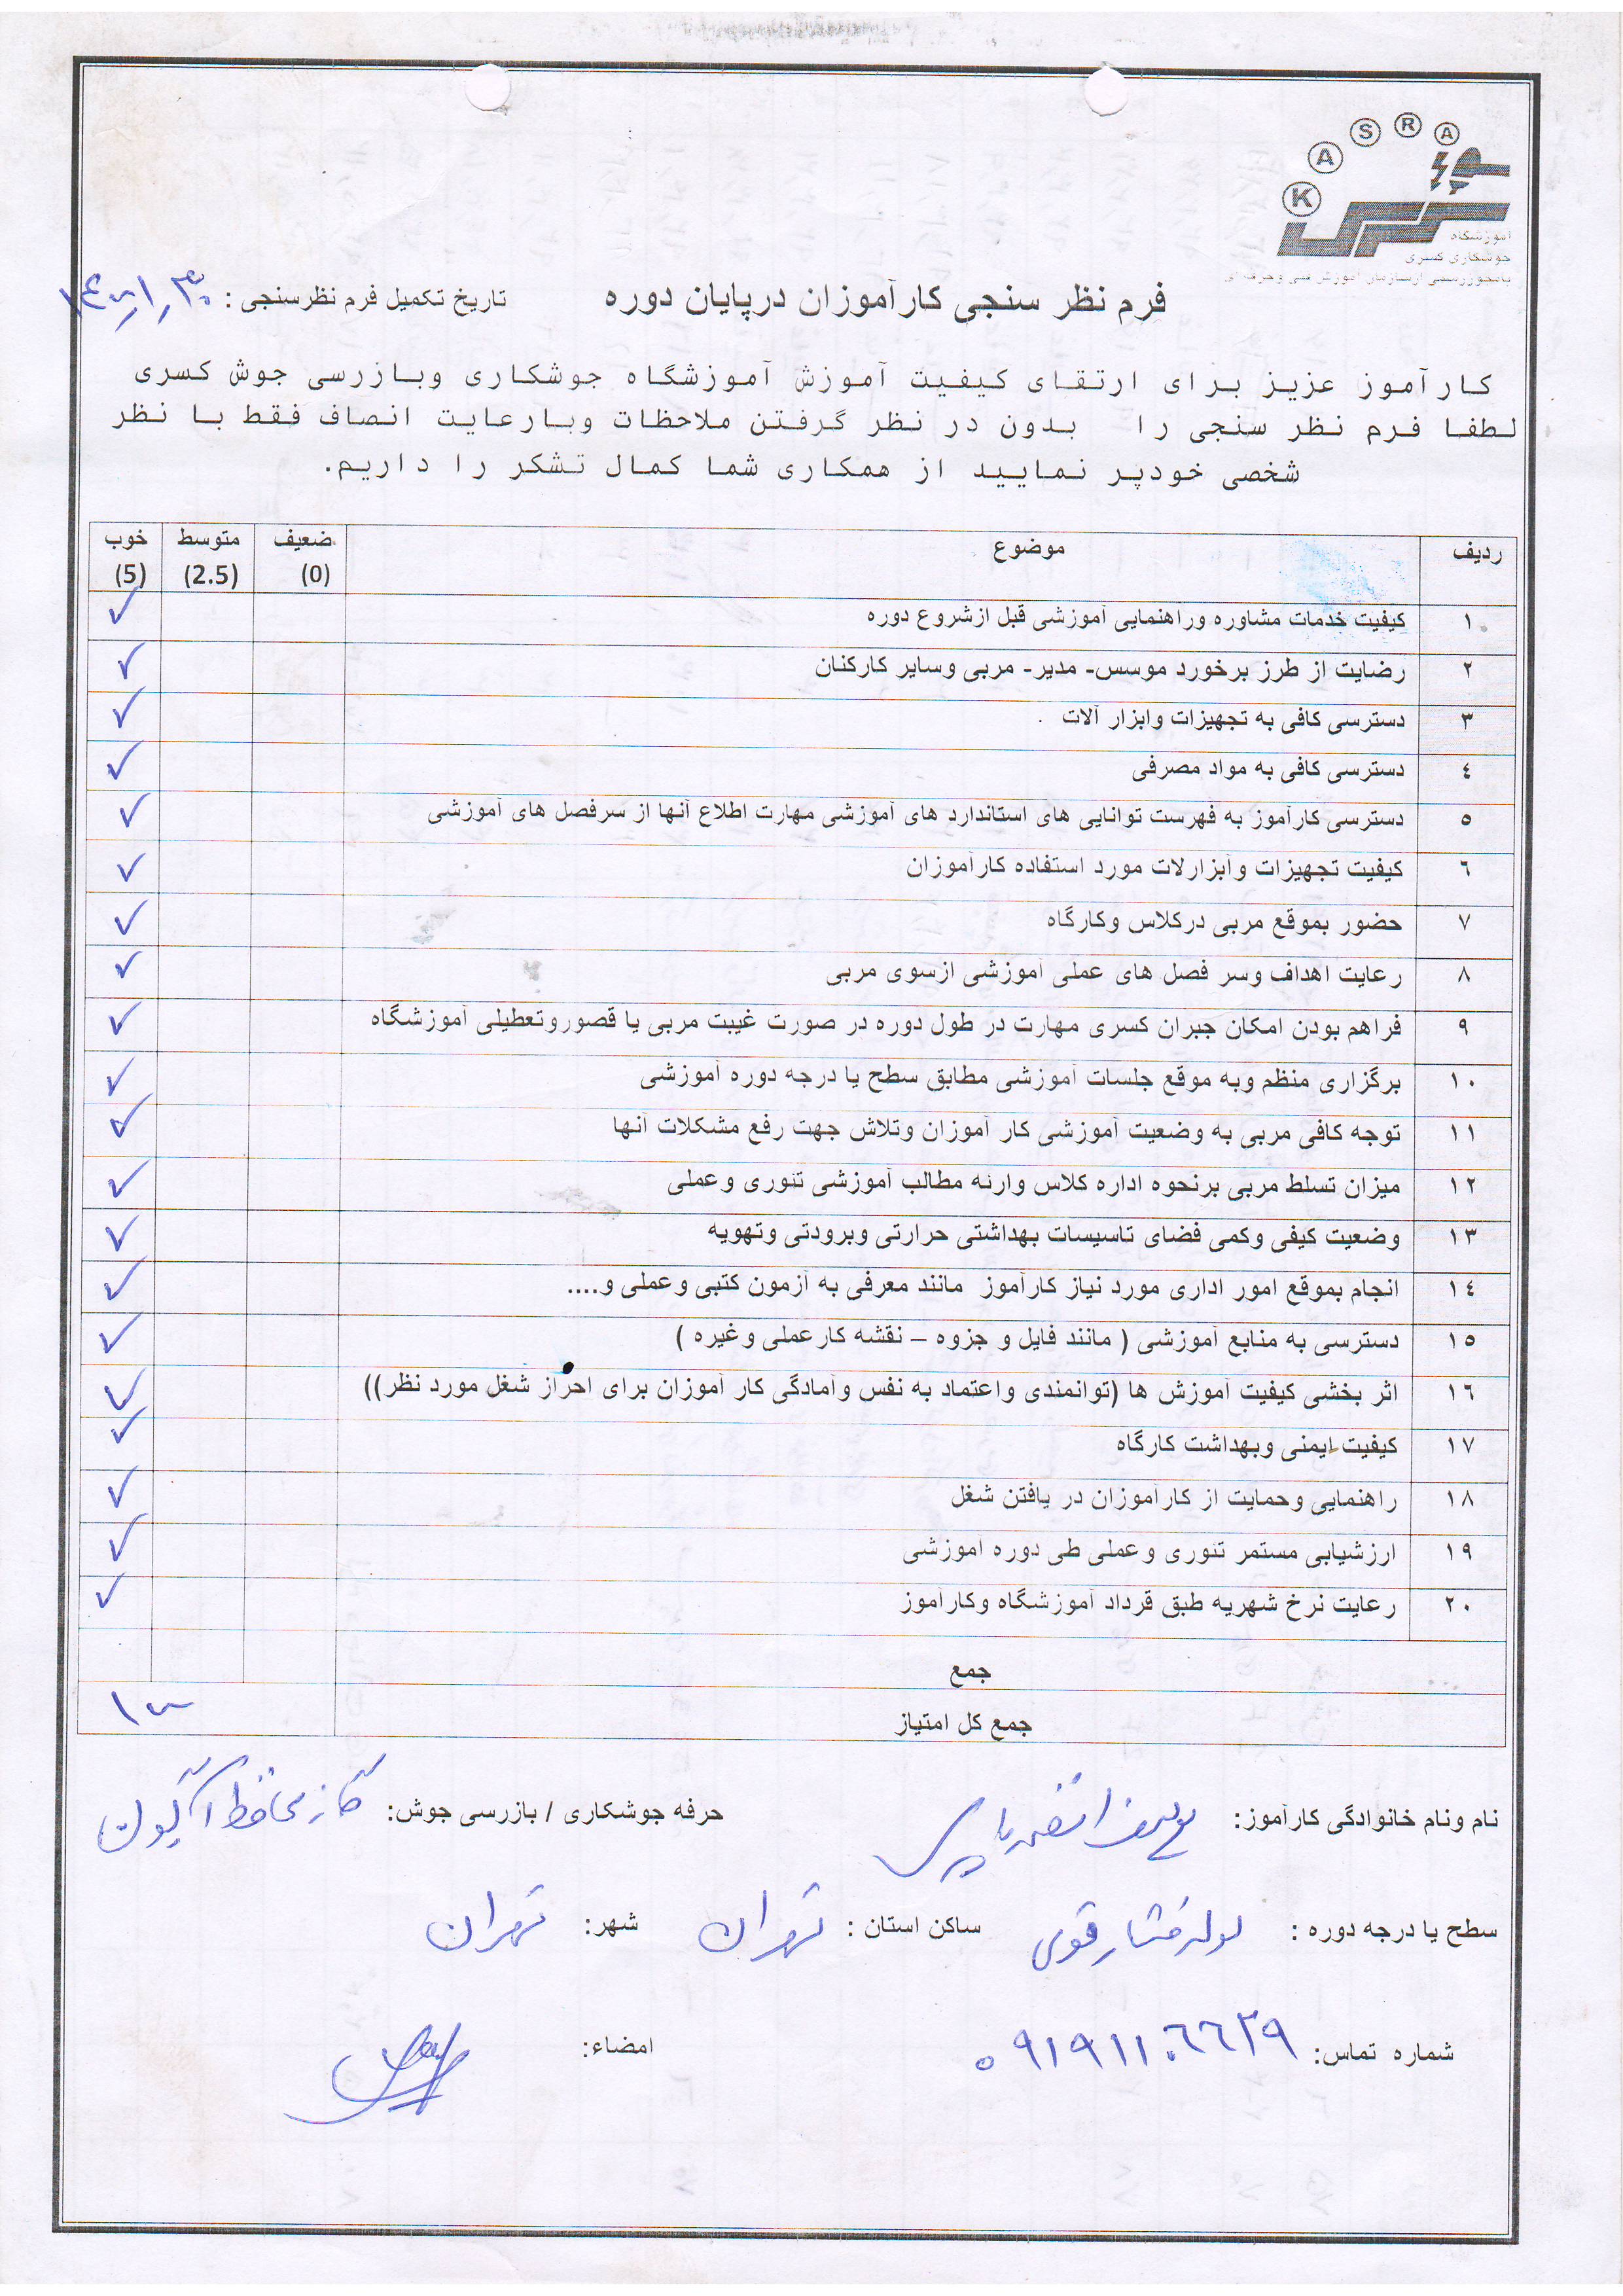 K A S R A
آموزشگاه
جوشکاری کسری
فرم نظر سنجی کارآموزان درپایان دوره
تاریخ تکمیل فرم نظرسنجی :
کارآموز عزیز برای ارتقای کیفیت آموزش آموزشگاه جوشکاری وبازرسی جوش کسری
لطفا فرم نظر سنجی را بدون در نظر گرفتن ملاحظات وبارعایت انصاف فقط با نظر
شخصی خودپر نمایید از همکاری شما کمال تشکر را داریم.
ردیف موضوع ضعیف (0) متوسط (2.5) خوب (5)
۱ کیفیت خدمات مشاوره وراهنمایی آموزشی قبل ازشروع دوره ✓
۲ رضایت از طرز برخورد موسس- مدیر- مربی وسایر کارکنان ✓
۳ دسترسی کافی به تجهیزات وابزار آلات ✓
٤ دسترسی کافی به مواد مصرفی ✓
٥ دسترسی کارآموز به فهرست توانایی های استاندارد های آموزشی مهارت اطلاع آنها از سرفصل های آموزشی ✓
٦ کیفیت تجهیزات وآبزارلات مورد استفاده کارآموزان ✓
۷ حضور بموقع مربی درکلاس وکارگاه ✓
۸ رعایت اهداف وسر فصل های عملی آموزشی ازسوی مربی ✓
۹ فراهم بودن امکان جبران کسری مهارت در طول دوره در صورت غیبت مربی یا قصوروتعطیلی آموزشگاه ✓
۱۰ برگزاری منظم وبه موقع جلسات آموزشی مطابق سطح یا درجه دوره آموزشی ✓
۱۱ توجه کافی مربی به وضعیت آموزشی کار آموزان وتلاش جهت رفع مشکلات آنها ✓
۱۲ میزان تسلط مربی برنحوه اداره کلاس وارئه مطالب آموزشی تئوری وعملی ✓
۱۳ وضعیت کیفی وکمی فضای تاسیسات بهداشتی حرارتی وبرودتی وتهویه ✓
۱٤ انجام بموقع امور اداری مورد نیاز کارآموز مانند معرفی به آزمون کتبی وعملی و.... ✓
۱٥ دسترسی به منابع آموزشی ( مانند فایل و جزوه – نقشه کارعملی وغیره ) ✓
۱٦ اثر بخشی کیفیت آموزش ها (توانمندی واعتماد به نفس وآمادگی کار آموزان برای احراز شغل مورد نظر)) ✓
۱۷ کیفیت ایمنی وبهداشت کارگاه ✓
۱۸ راهنمایی وحمایت از کارآموزان در یافتن شغل ✓
۱۹ ارزشیابی مستمر تئوری وعملی طی دوره آموزشی ✓
۲۰ رعایت نرخ شهریه طبق قرداد آموزشگاه وکارآموز ✓
جمع
جمع کل امتیاز ۱۰۰
نام ونام خانوادگی کارآموز:
حرفه جوشکاری / بازرسی جوش: گاز محافظ آرگون
سطح یا درجه دوره : لوله فشار قوی ساکن استان : تهران شهر: تهران
شماره تماس: ۰۹۱۹۱۱۰٦٦۲۹ امضاء: